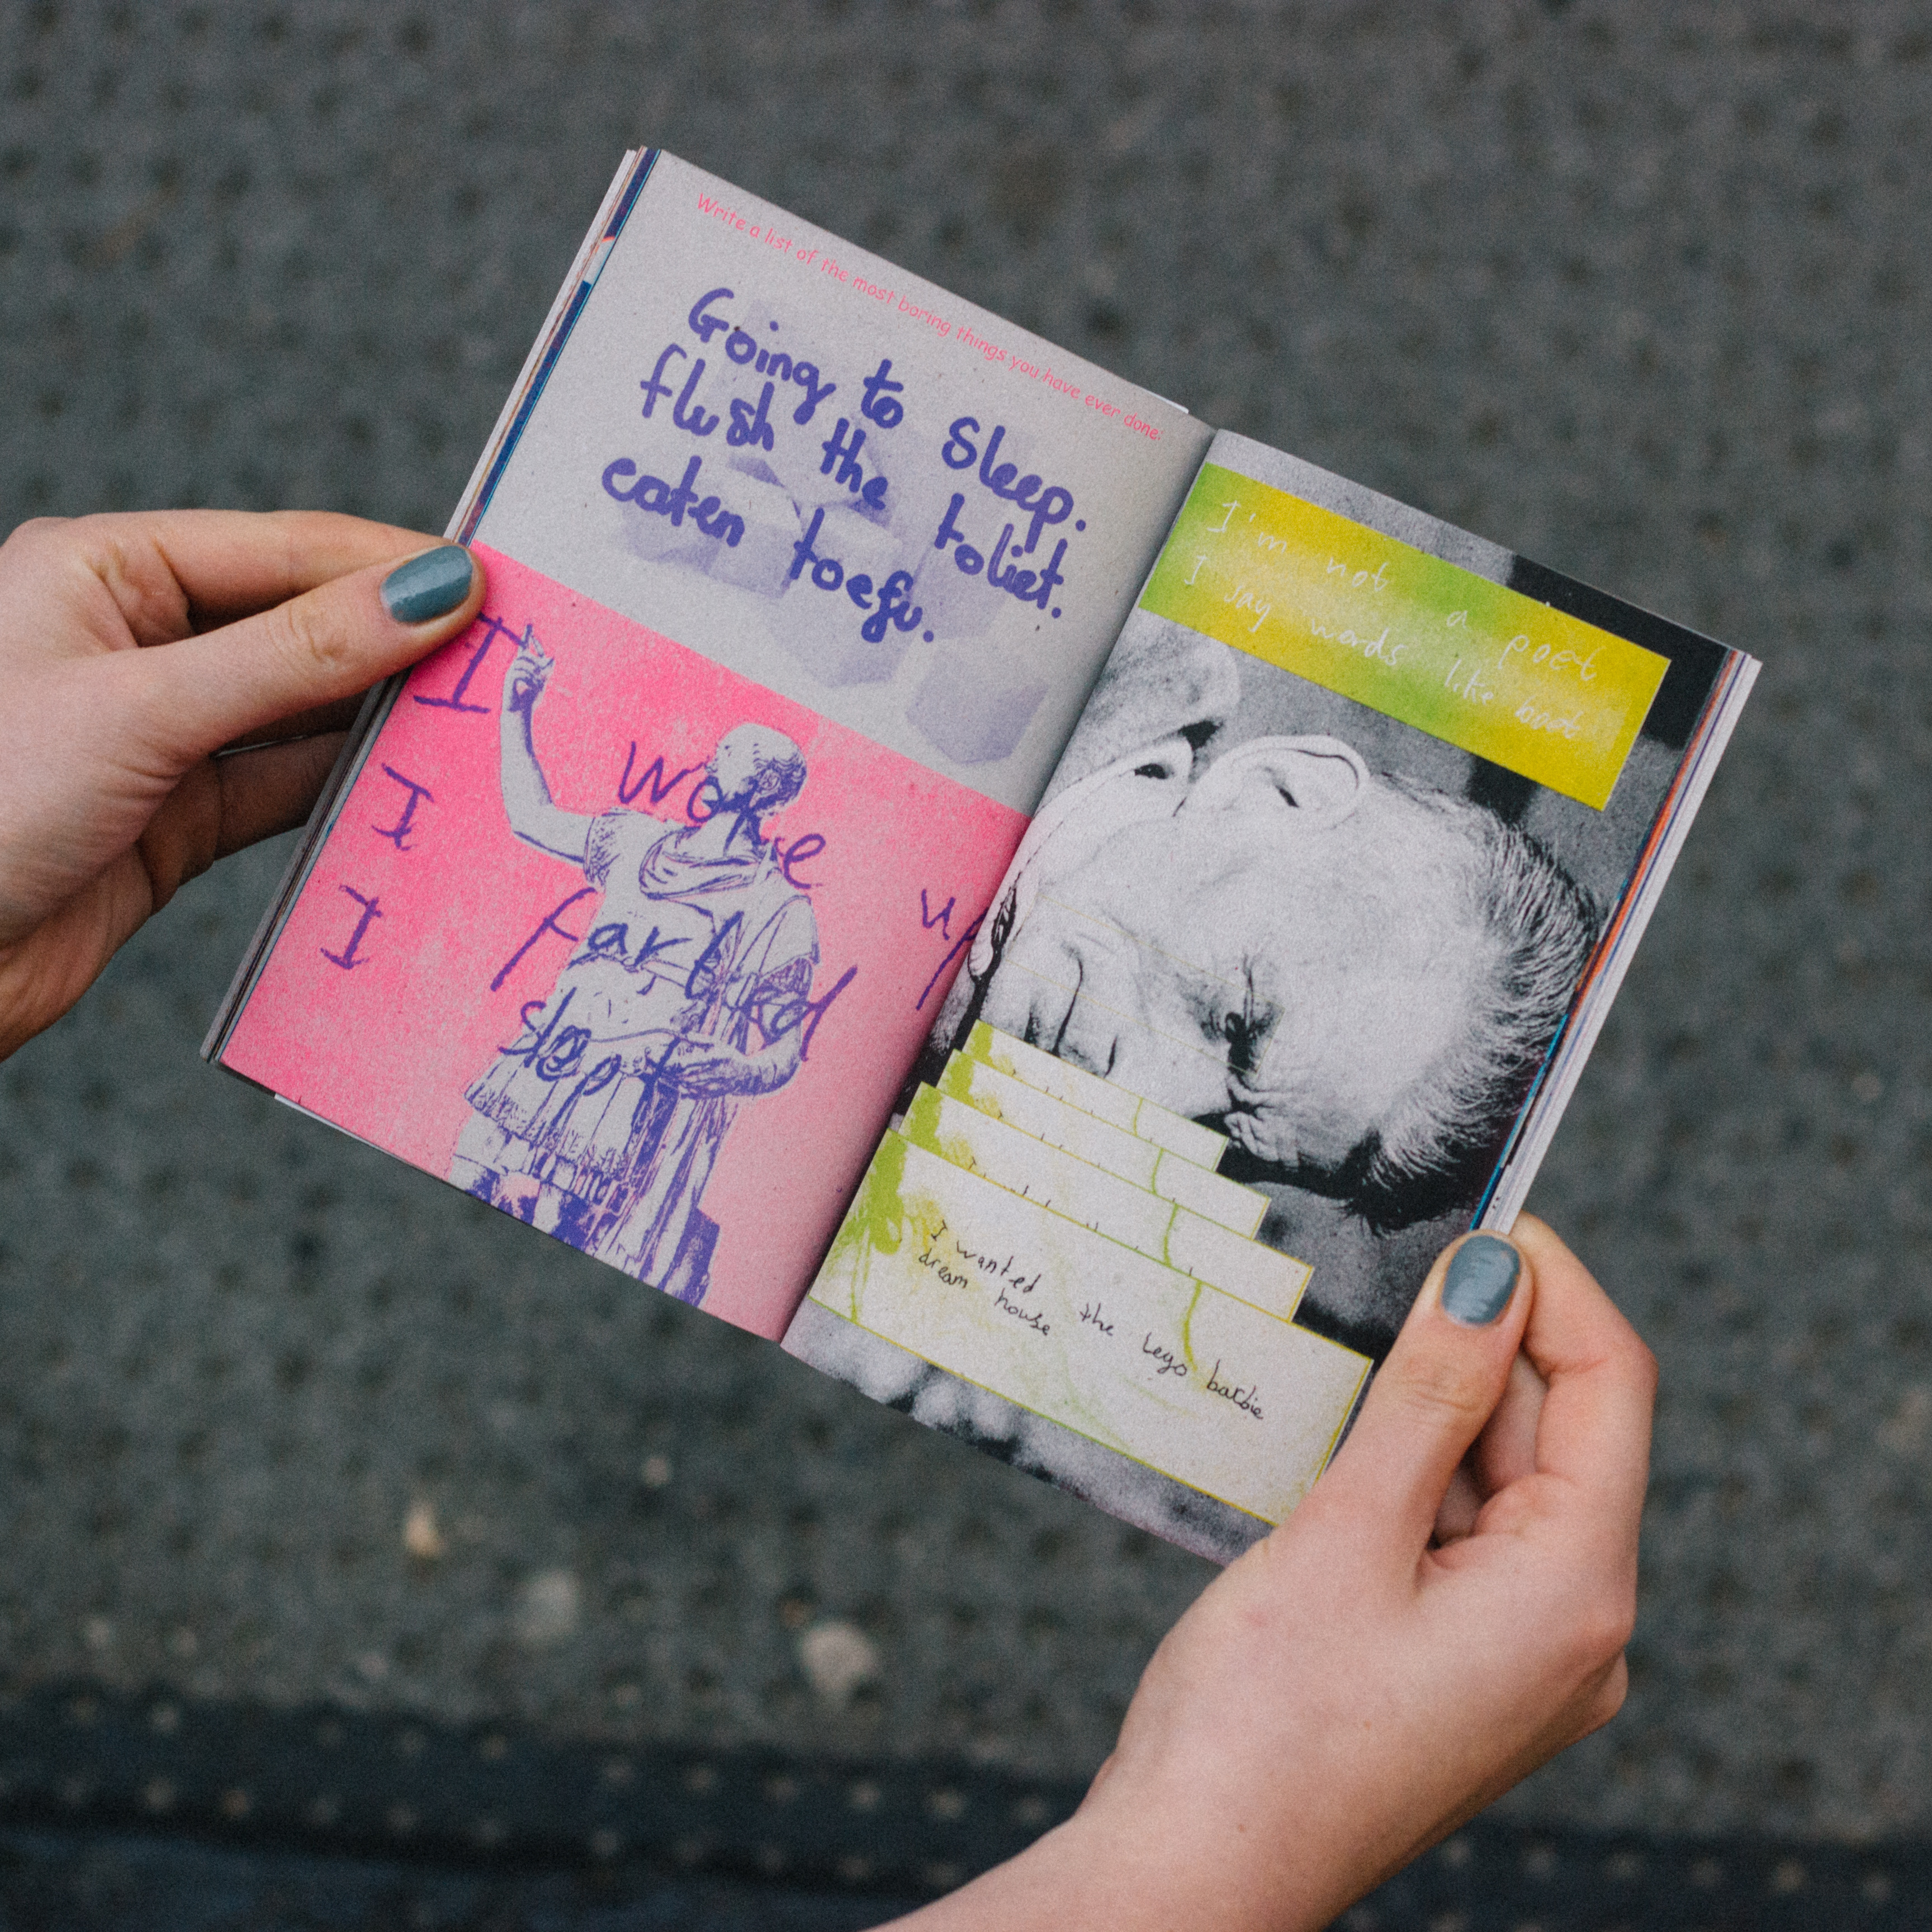 Write a list of the most boring things you have ever done.
Going to Sleep.
flush the toliet.
eaten toefu.
I woke up
I farted
I slept
I'm not a poet
I say words like boat
I wanted the Lego barbie
dream house